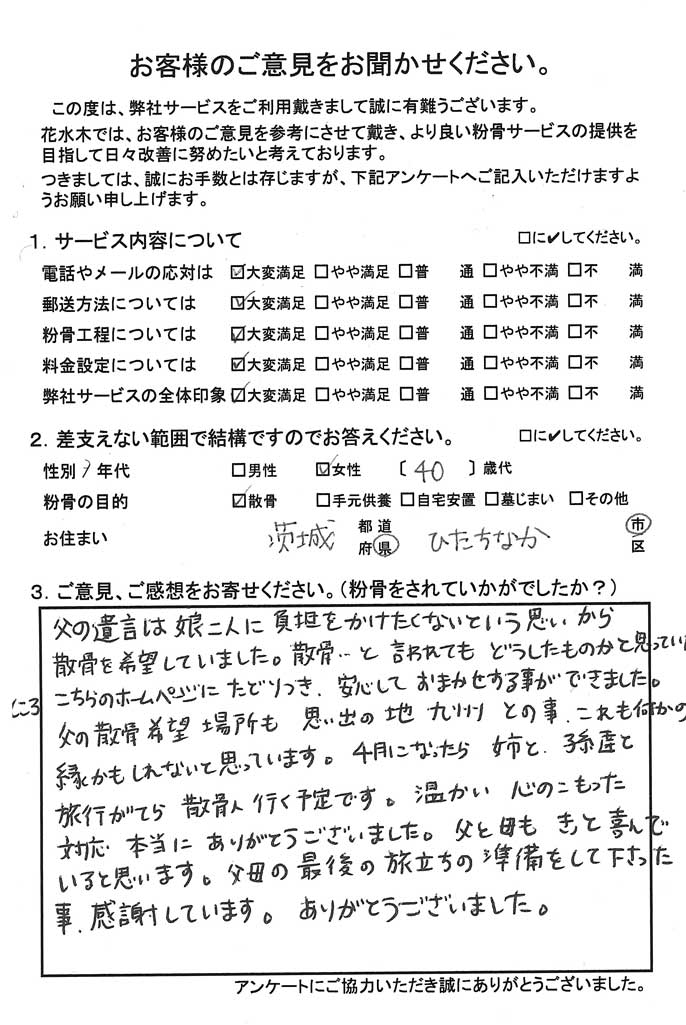 お客様のご意見をお聞かせください。
この度は、弊社サービスをご利用戴きまして誠に有難うございます。
花水木では、お客様のご意見を参考にさせて戴き、より良い粉骨サービスの提供を
目指して日々改善に努めたいと考えております。
つきましては、誠にお手数とは存じますが、下記アンケートへご記入いただけますよ
うお願い申し上げます。
1. サービス内容について □に✔してください。
電話やメールの応対は ☑大変満足 □やや満足 □普 通 □やや不満 □不 満
郵送方法については ☑大変満足 □やや満足 □普 通 □やや不満 □不 満
粉骨工程については ☑大変満足 □やや満足 □普 通 □やや不満 □不 満
料金設定については ☑大変満足 □やや満足 □普 通 □やや不満 □不 満
弊社サービスの全体印象 ☑大変満足 □やや満足 □普 通 □やや不満 □不 満
2. 差支えない範囲で結構ですのでお答えください。 □に✔してください。
性別 / 年代 □男性 ☑女性 〔 40 〕歳代
粉骨の目的 ☑散骨 □手元供養 □自宅安置 □墓じまい □その他
お住まい 茨城 都道府県 ひたちなか 市区
3. ご意見、ご感想をお寄せください。（粉骨をされていかがでしたか？）
父の遺言は娘二人に負担をかけたくないという思いから
散骨を希望していました。散骨…と言われてもどうしたものかと思ってい
たところ
こちらのホームページにたどりつき、安心しておまかせする事ができました。
父の散骨希望場所も思い出の地九州との事、これも何かの
縁かもしれないと思っています。4月になったら姉と、孫達と
旅行がてら散骨へ行く予定です。温かい心のこもった
対応本当にありがとうございました。父と母もきっと喜んで
いると思います。父母の最後の旅立ちの準備をして下さった
事、感謝しています。ありがとうございました。
アンケートにご協力いただき誠にありがとうございました。